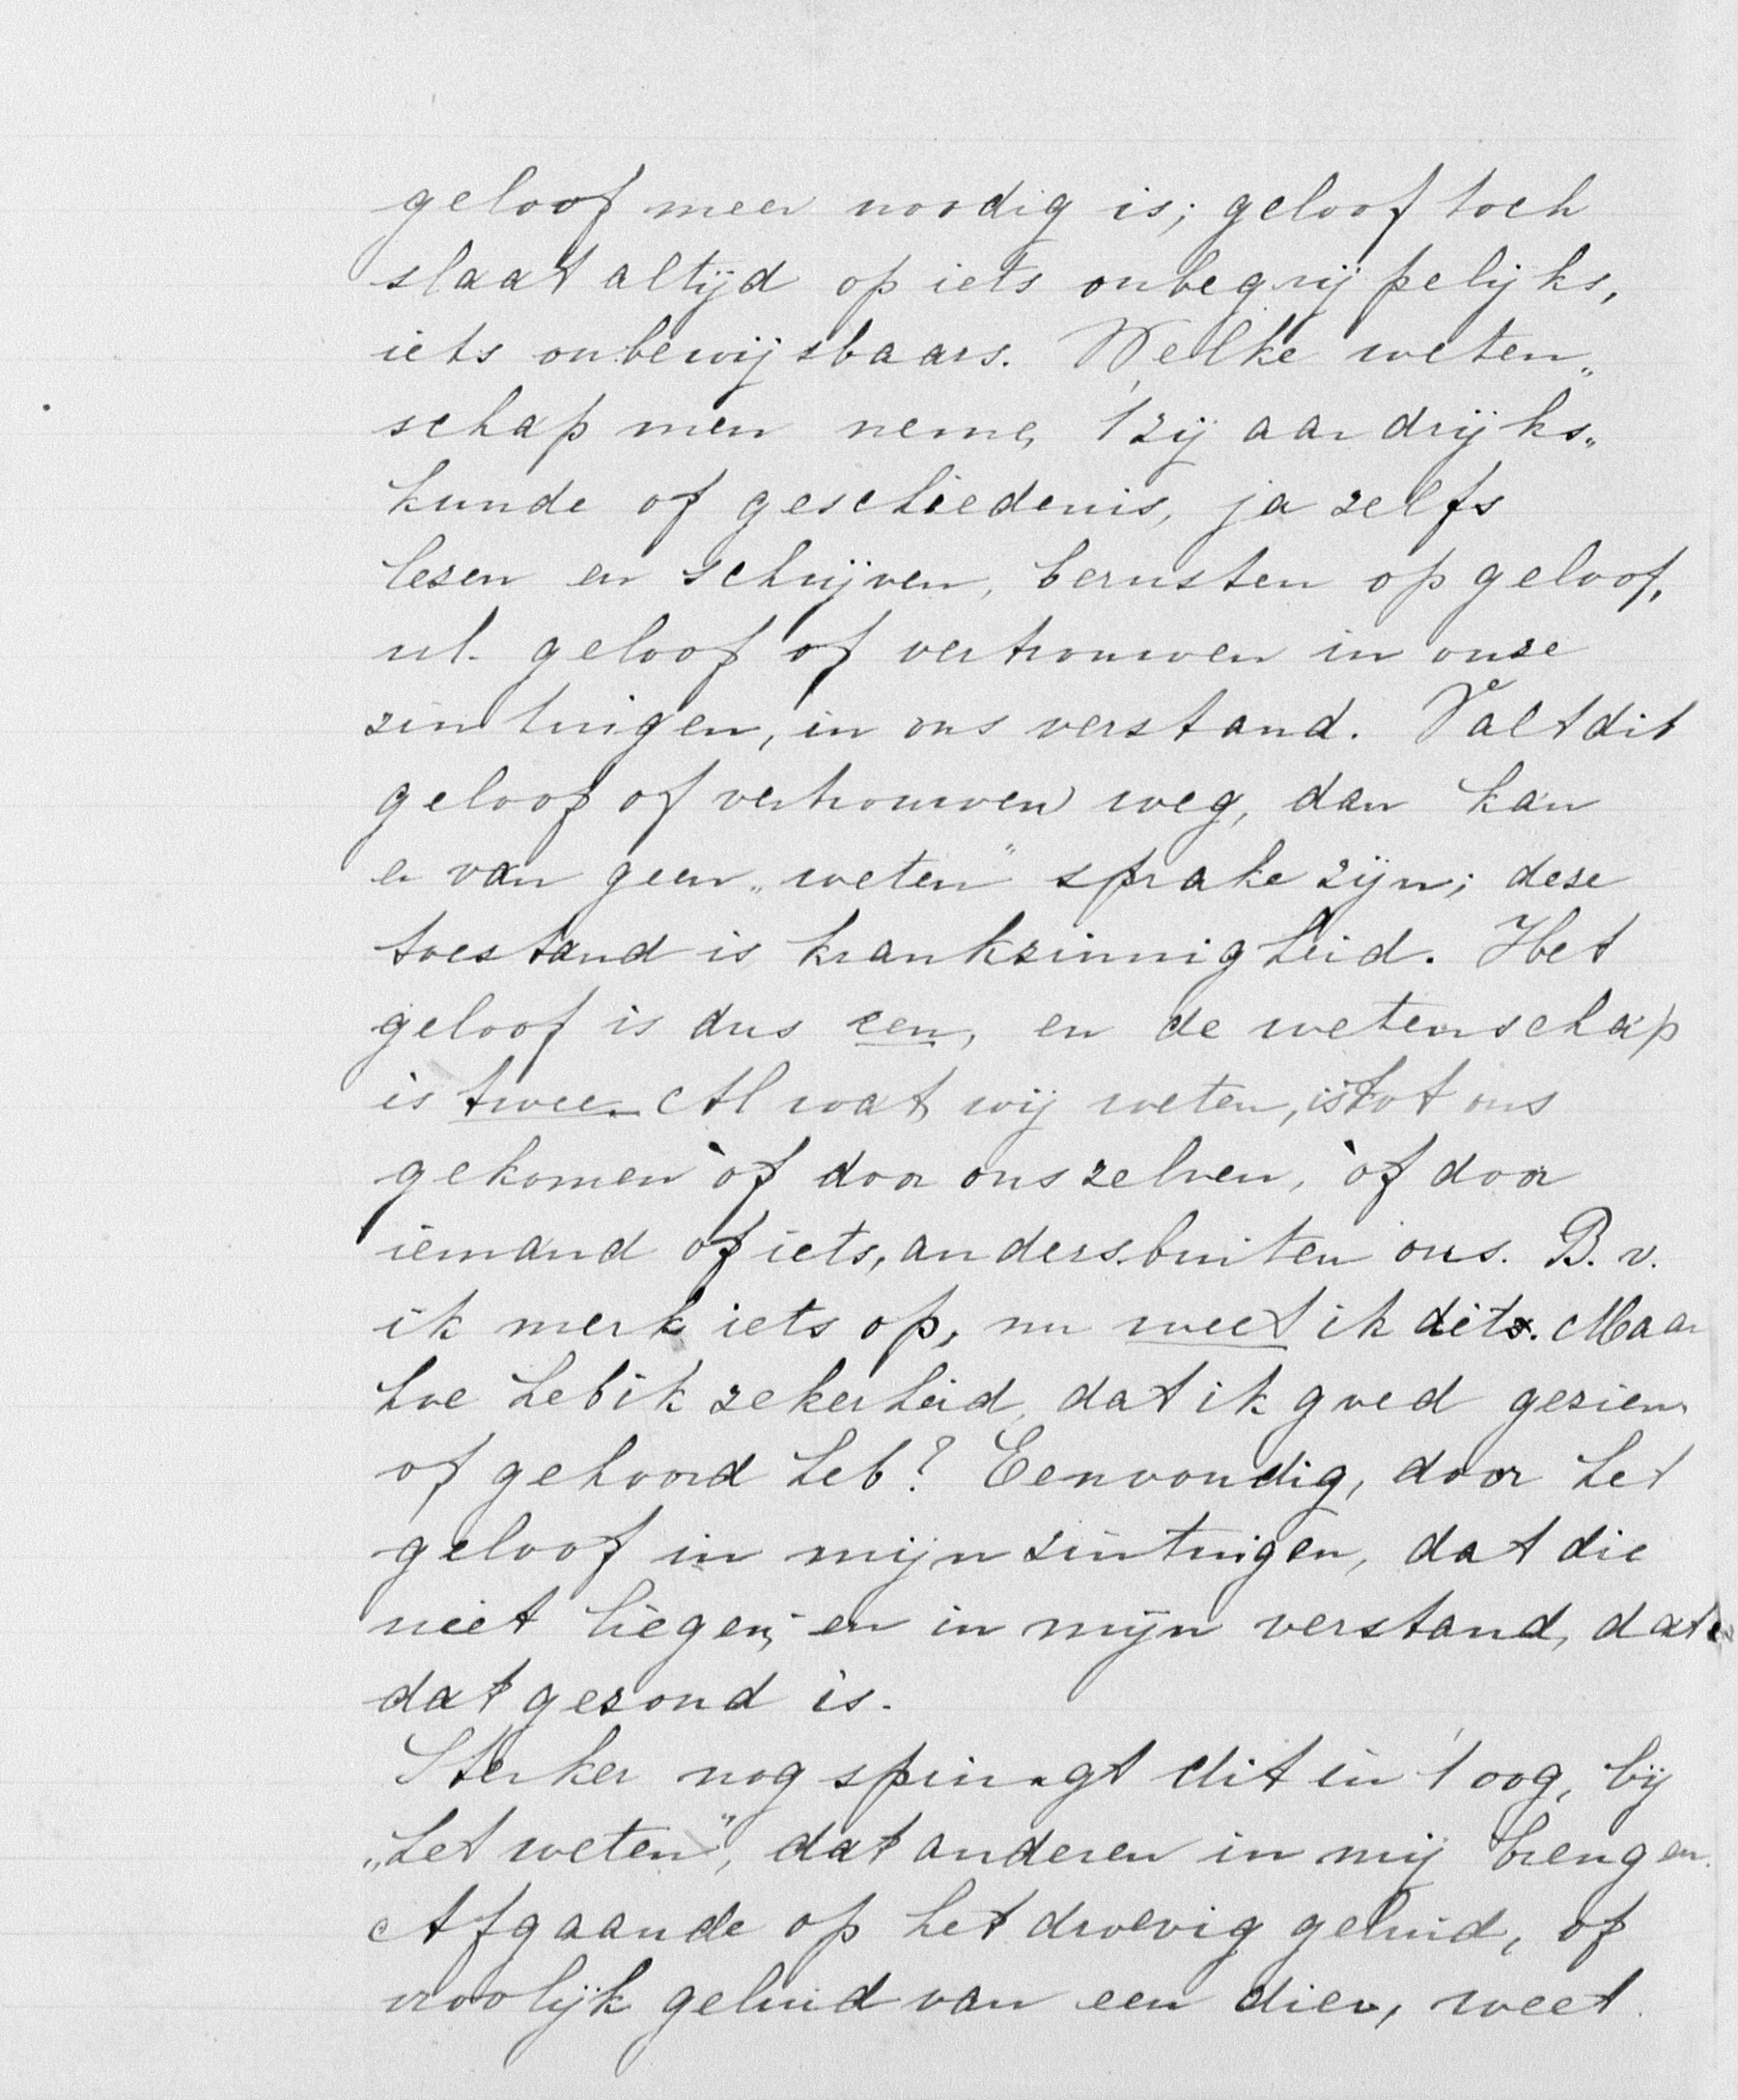 geloof meer noodig is; geloof toch
slaat altijd op iets onbegrijpelijks,
iets onbewijsbaars. Welke weten„
schap men neme, 't zij aardrijks„
kunde of geschiedenis, ja zelfs
lezen en schrijven, berusten op geloof,
nl. geloof of vertrouwen in onze
zintuigen, in ons verstand. Valt dit
geloof of vertrouwen weg, dan kan
er van geen „weten" sprake zijn; deze
toestand is krankzinnigheid. Het
geloof is dus een, en de wetenschap
is twee. Al wat wij weten, is tot ons
gekomen òf door onszelven, òf door
iemand of iets, anders buiten ons. B.v.
ik merk iets op, nu weet ik dit. Maar
hoe heb ik zekerheid, dat ik goed gezien
of gehoord heb? Eenvoudig, door het
geloof in mijn zintuigen, dat die
niet liegen, en in mijn verstand, dat
dat gezond is.
Sterker nog springt dit in 't oog, bij
„het weten", dat anderen in mij brengen.
Afgaande op het droevig geluid, of
vroolijk geluid van een dier, weet